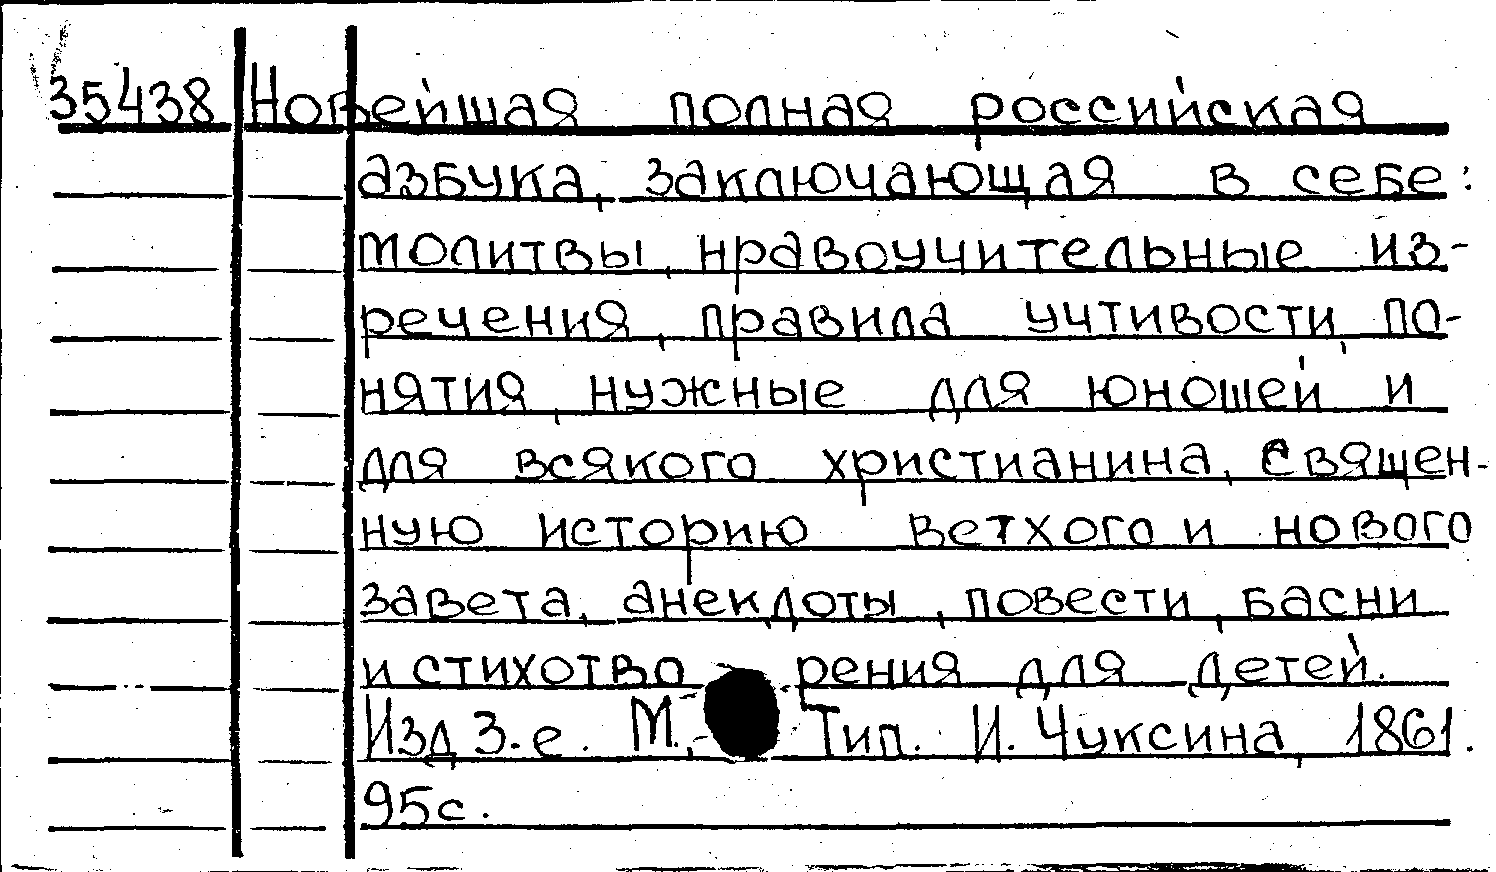 35438 Новейшая полная российская
азбука, заключающая в себе:
молитвы, нравоучительные из-
речения, правила учтивости, по-
нятия, нужные для юношей и
для всякого христианина, священ-
ную историю ветхого и нового
завета, анекдоты, повести, басни
и стихотворения для детей.
Изд 3-е. М., Тип. И. Чуксина, 1861.
95с.